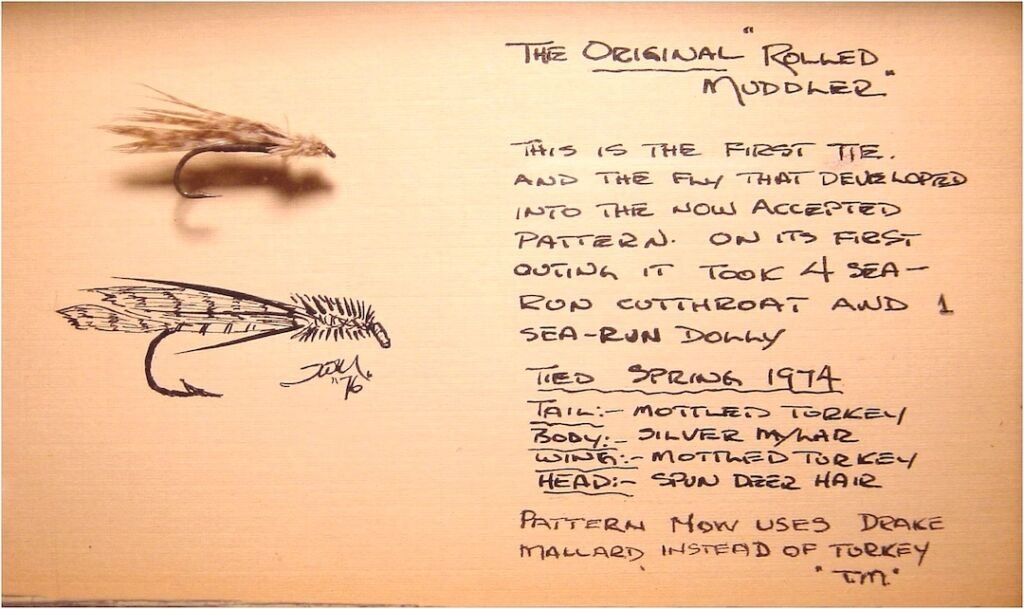 THE ORIGINAL "ROLLED
MUDDLER"
THIS IS THE FIRST TIE.
AND THE FLY THAT DEVELOPED
INTO THE NOW ACCEPTED
PATTERN. ON ITS FIRST
OUTING IT TOOK 4 SEA-
RUN CUTTHROAT AND 1
SEA-RUN DOLLY
TIED SPRING 1974
TAIL:- MOTTLED TURKEY
BODY:- SILVER MYLAR
WING:- MOTTLED TURKEY
HEAD:- SPUN DEER HAIR
PATTERN NOW USES DRAKE
MALLARD INSTEAD OF TURKEY
"T.M."
"76"